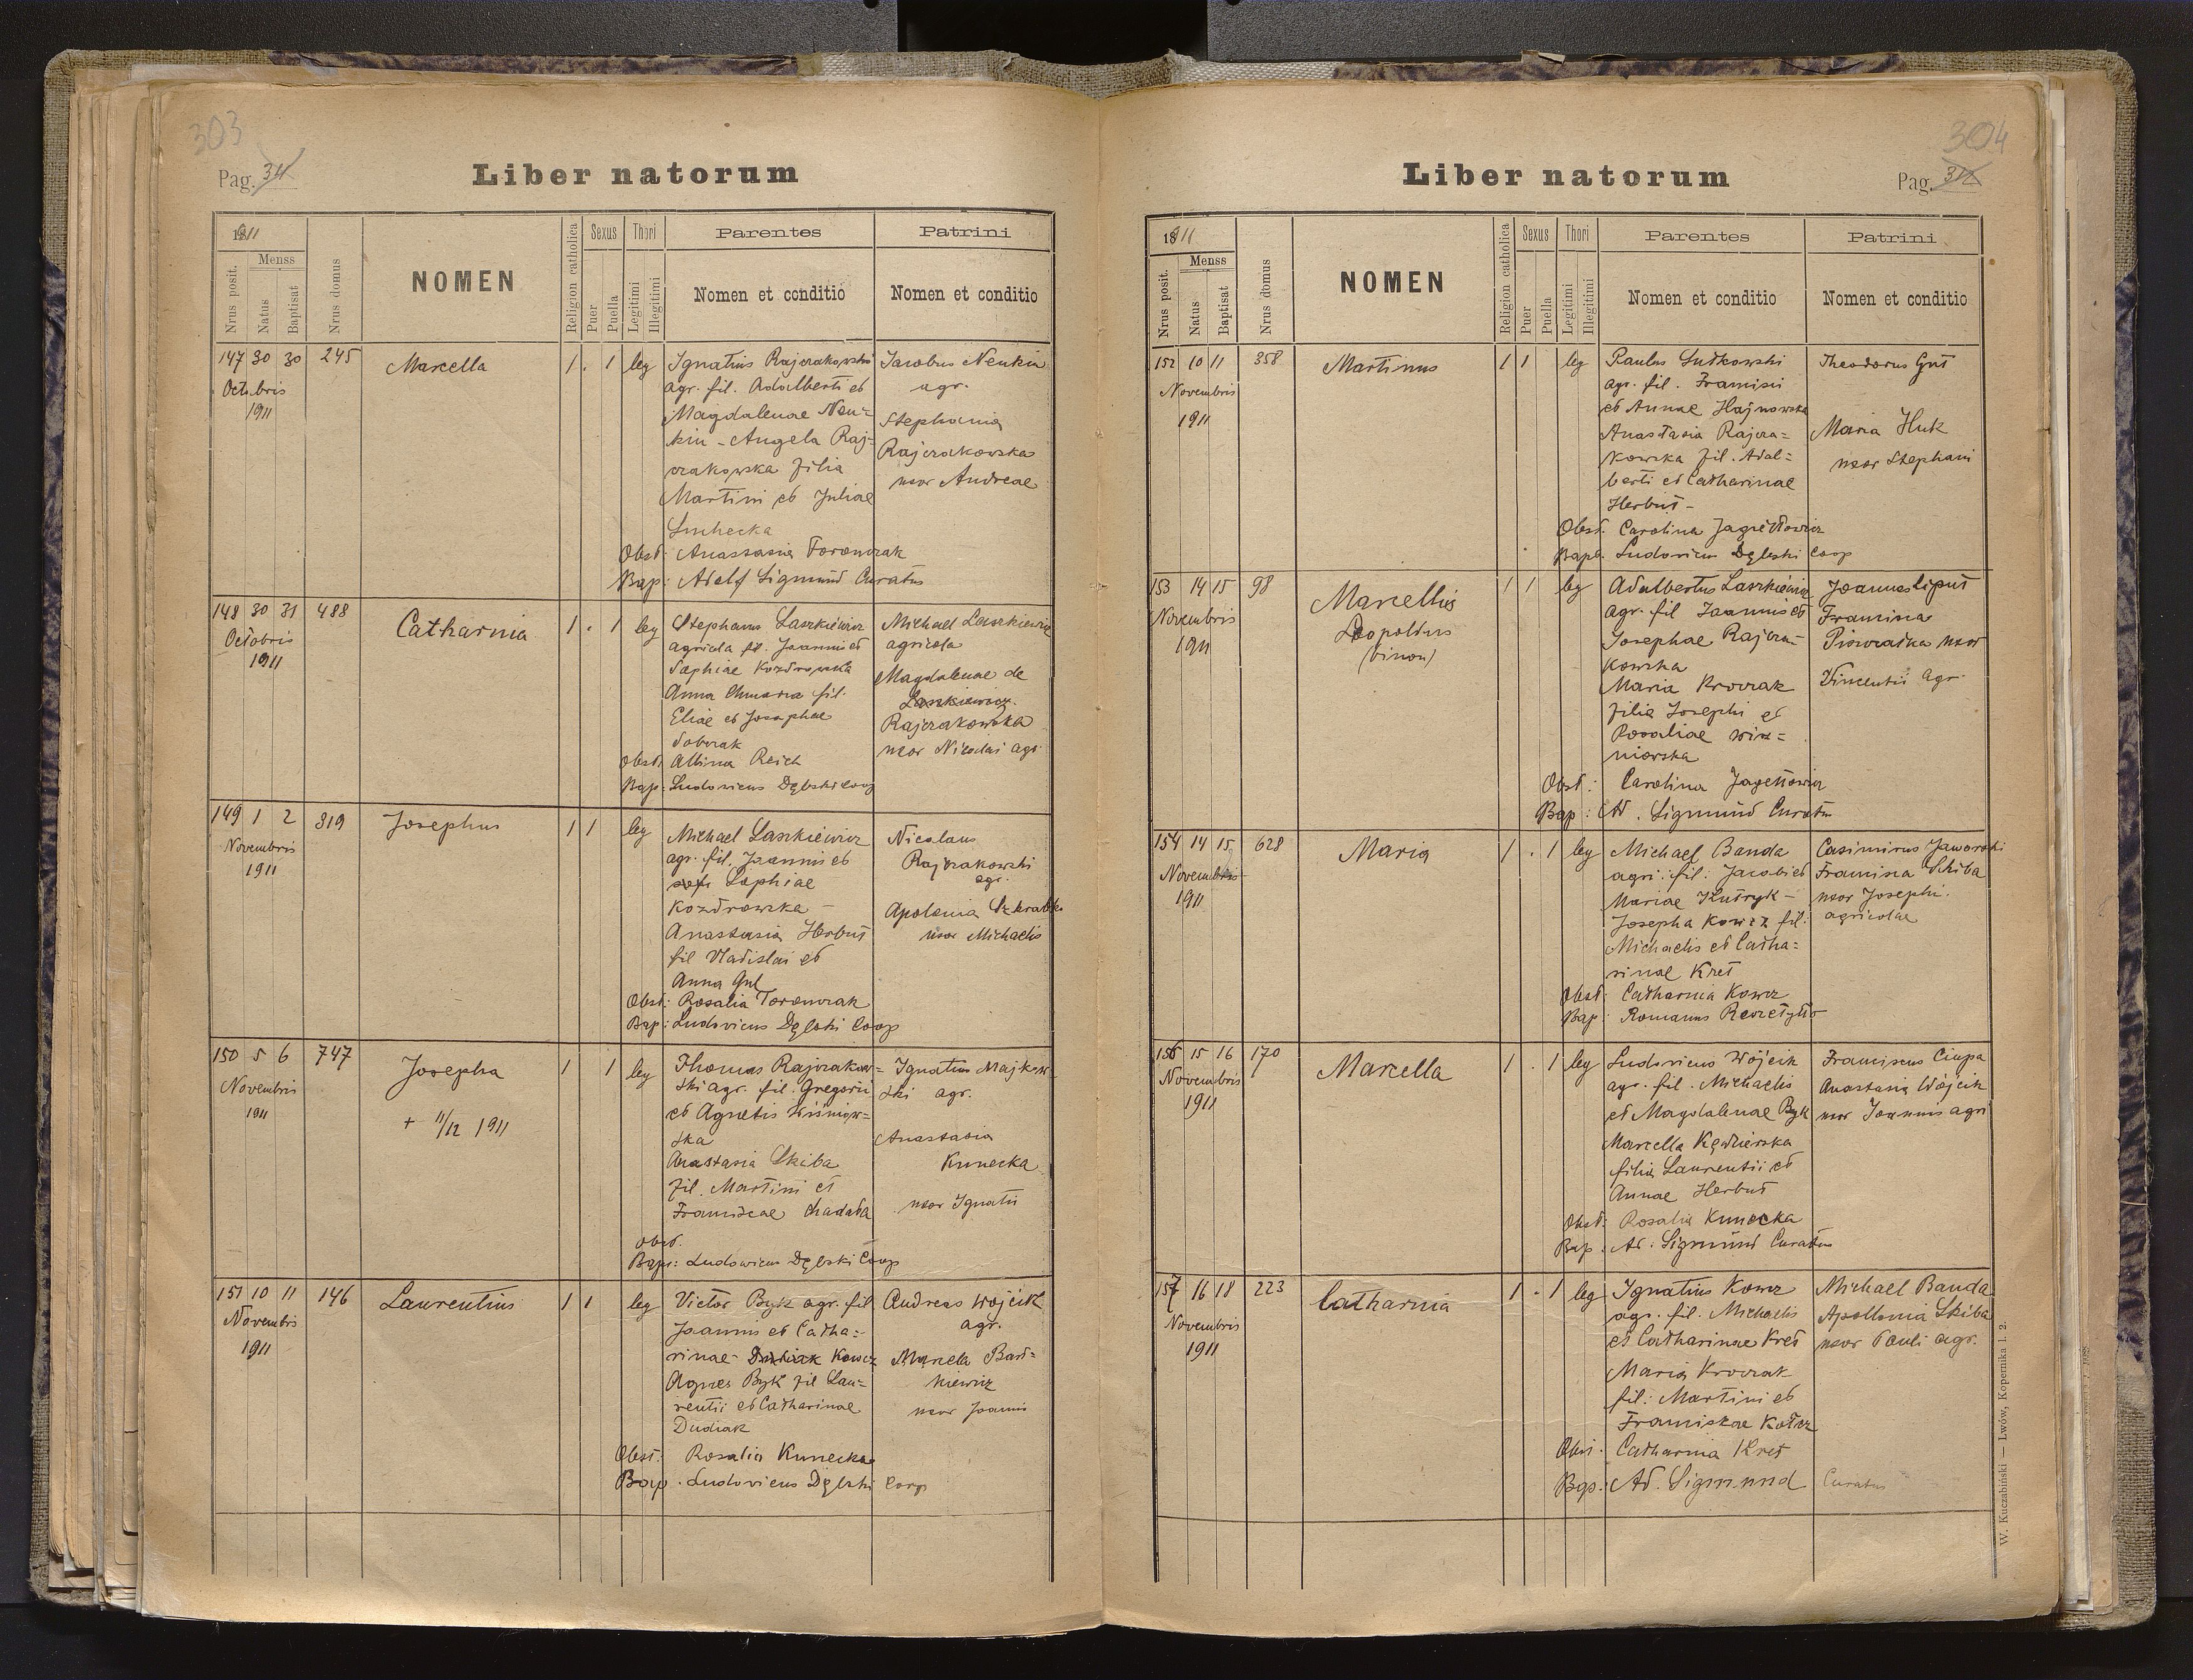 303
Pag. 311
Liber natorum
1911
Nrus posit.
Menss
Natus
Baptisat
Nrus domus
NOMEN
Religion catholica
Sexus
Puer
Puella
Thori
Legitimi
Illegitimi
Parentes
Nomen et conditio
Patrini
Nomen et conditio
147 30 30 245
Octobris
1911
Marcella
1 . 1 leg
Ignatius Rajczakowski
agr. fil. Adalberti et
Magdalenae Neu=
kin - Angela Raj=
czakowska filia
Martini et Juliae
Suchecka
Jacobus Neukin
agr.
Stephania
Rajczakowska
uxor Andreae
Obst: Anastasia Toronczak
Bap: Adolf Sigmund Curatus
148 30 31 488
Octobris
1911
Catharina
1 . 1 leg
Stephanus Laszkiewicz
agricola fil. Joannis et
Sophiae Kozdrowska
Anna Chmura fil.
Eliae et Josephae
Sobczak
Michael Laszkiewicz
agricola
Magdalenae de
Laszkiewicz
Rajczakowska
uxor Nicolai agr.
Obst: Albina Reich
Bap: Ludovicus Dębski Coop
149 1 2 319
Novembris
1911
Josephus
1 1 leg
Michael Laszkiewicz
agr. fil. Joannis et
Sophiae
Kozdrowska -
Anastasia Herbut
fil Vladislai et
Anna Gul
Nicolaus
Rajczakowski
agr.
Apolonia
uxor Michaelis
Obst: Rosalia Toronczak
Bap: Ludovicus Dębski Coop
150 5 6 747
Novembris
1911
Josepha
+ 11/12 1911
1 1 leg
Thomas Rajczakow=
ski agr. fil. Gregorii
et Agnetis Wiśniow=
ska
Anastasia Skiba
fil. Martini et
Franciscae Chadaba
Ignatius Majkow=
ski agr.
Anastasia
Kunecka
uxor Ignatii
Obst.
Bap: Ludovicus Dębski Coop
151 10 11 146
Novembris
1911
Laurentius
1 1 leg
Victor Byk agr. fil
Joannis et Catha=
rinae Kowcz
Agnes Byk fil Lau=
rentii et Catharinae
Dudiak
Andreas Wojcik
agr.
Marcela Bart=
kiewicz
uxor Joannis
Obst: Rosalia Kunecka
Bap: Ludovicus Dębski Coop
304
Pag. 312
Liber natorum
1911
Nrus posit.
Menss
Natus
Baptisat
Nrus domus
NOMEN
Religion catholica
Sexus
Puer
Puella
Thori
Legitimi
Illegitimi
Parentes
Nomen et conditio
Patrini
Nomen et conditio
152 10 11 358
Novembris
1911
Martinus
1 1 leg
Paulus Sutkowski
agr. fil. Francisci
et Annae Hajnowska
Anastasia Rajcza=
kowska fil. Adal=
berti et Catharinae
Herbut -
Theodorus Gut
Maria Huk
uxor Stephani
Obst. Carolina Jagiełłowicz
Bapt. Ludovicus Dębski Coop
153 14 15 98
Novembris
1911
Marcellus
Leopoldus
(binom)
1 1 leg
Adalbertus Laszkiewicz
agr. fil Joannis et
Josephae Rajcza=
kowska
Maria Kroczak
filia Josephi et
Rosaliae Wis=
niowska
Joannes Liput
Francisca
uxor
Vincentii agr.
Obst: Carolina Jagiełłowicz
Bap: Ad. Sigmund Curatus
154 14 15 628
Novembris
1911
Maria
1 . 1 leg
Michael Banda
agri: fil: Jacobi et
Mariae Kutryk -
Josepha Kowcz fil:
Michaelis et Catha=
rinae Kret
Casimirus Jaworski
Francisca Skiba
uxor Josephi
agricolae
Obst: Catharina Kowcz
Bap: Romanus
156 15 16 170
Novembris
1911
Marcella
1 . 1 leg
Ludovicus Wójcik
agr. fil. Michaelis
et Magdalenae Byk
Marcella Kędzierska
filia Laurentii et
Annae Herbut
Franciscus Ciupa
Anastasia Wójcik
uxor Joannis agri
Obst: Rosalia Kunecka
Bap: Ad: Sigmund Curatus
157 16 18 223
Novembris
1911
Catharina
1 . 1 leg
Ignatius Kowcz
agr. fil. Michaelis
et Catharinae Kret
Maria Kroczak
fil: Martini et
Franciscae Kołcz
Michael Banda
Apollonia Skiba
uxor Pauli agr.
Obst. Catharina Kret
Bap: Ad. Sigmund Curatus
W. Kuczabiński — Lwów, Kopernika l. 2.